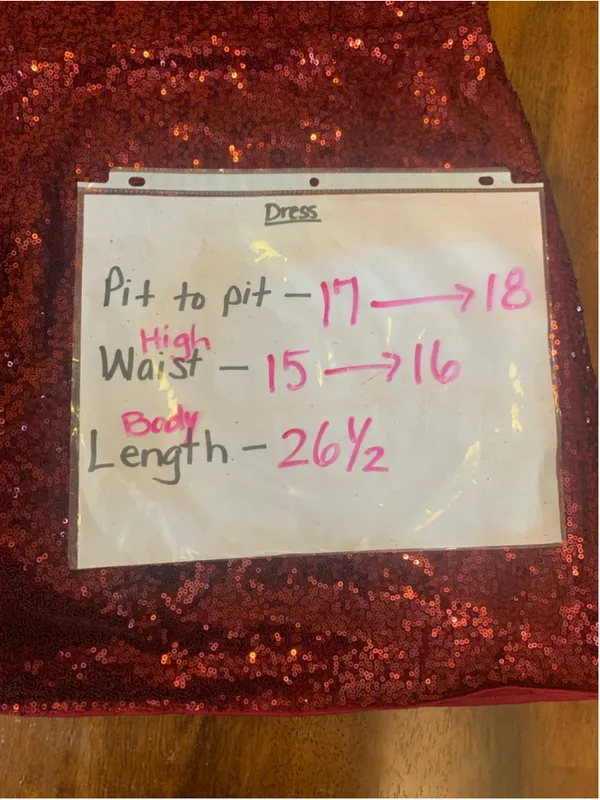 Dress
Pit to pit - 17 → 18
High
Waist - 15 → 16
Body
Length - 26 1/2